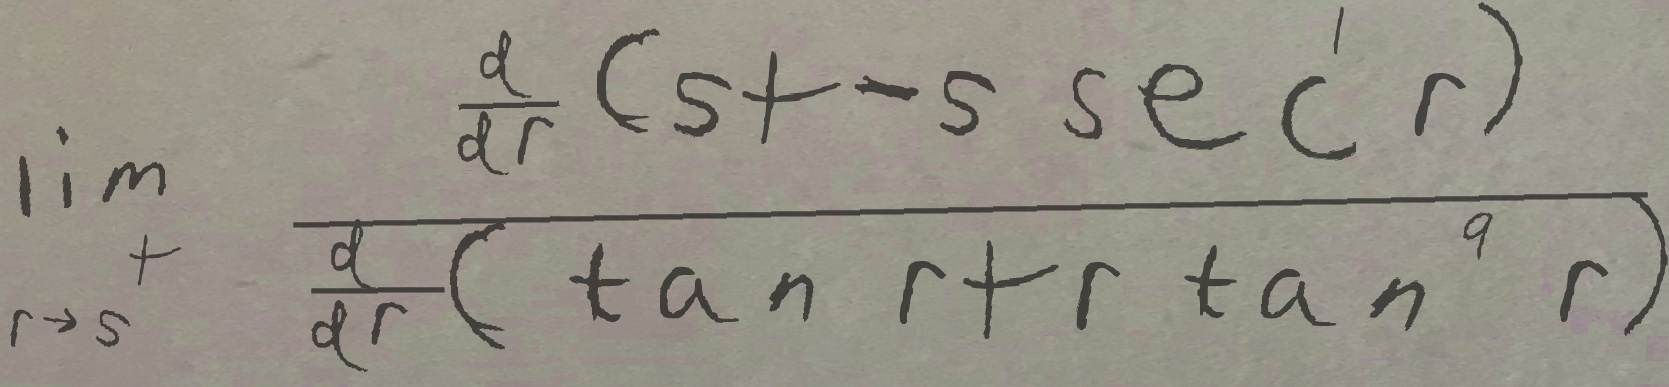 \lim_{r \to s^{+}} \frac{\frac{d}{dr}(s+-s \sec^{1} r)}{\frac{d}{dr}(\tan r+r \tan^{9} r)}